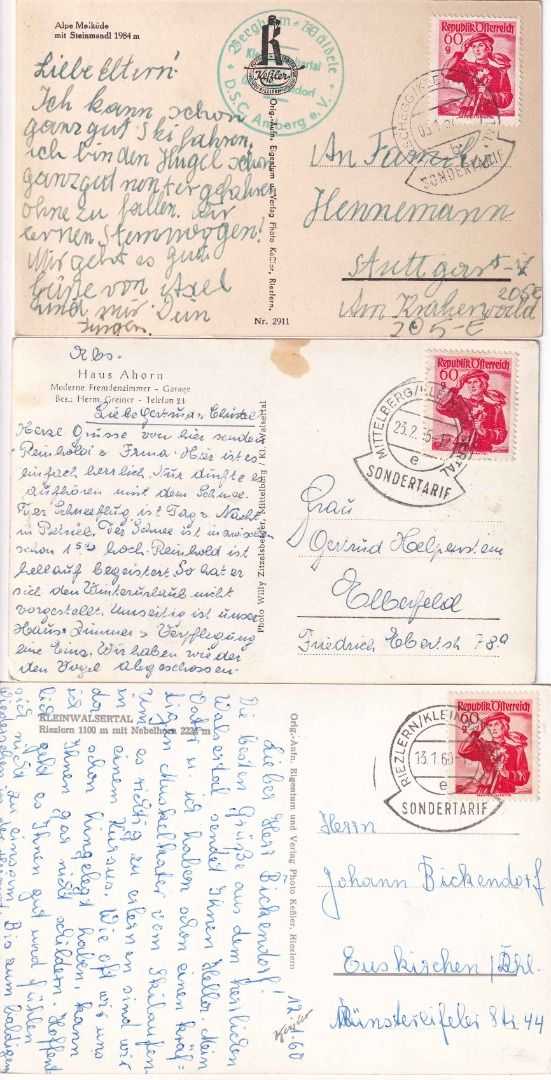 Alpe Melköde
mit Steinmandl 1984 m
Liebe Eltern!
Ich kann schon
ganz gut Ski fahren,
ich bin den Hügel schon
ganz gut runter gefahren
ohne zu fallen. Wir
lernen Stemmbogen!
Mir geht es gut.
Grüße von Axel
und mir Dein
Jürgen.
D.S.C. Amberg e.V.
K
Keßler
Orig.-Aufn. Eigentum u. Verlag Photo Keßler, Riezlern.
Nr. 2911
Republik Österreich
60 g
SONDERTARIF
An Familie
Hennemann
Stuttgart-W
Am Kräherwald
205 E
205-E
Abs.
Haus Ahorn
Moderne Fremdenzimmer - Garage
Bes.: Herm. Greiner - Telefon 21
Liebe Gertrud u. Christel
Herzl. Grüsse von hier senden
Reinhold u. Erna. Hier ist es
einfach herrlich. Nur dürfte es
aufhören mit dem Schnee.
Der Schneepflug ist Tag u. Nacht
in Betrieb. Der Schnee ist inzwischen
schon hoch. Reinhold ist
hellauf begeistert. So hat er
sich den Winterurlaub nicht
vorgestellt. Umseitig ist unser
Haus. Zimmer u. Verpflegung
eine Eins. Wir haben wieder
den Vogel abgeschossen.
Photo Willy Zitzelsberger, Mittelberg / Kl. Walsertal
Republik Österreich
60 g
MITTELBERG/KLEINWALSERTAL
23.2.
e
SONDERTARIF
Frau
Gertrud Helpenstein
Elberfeld
Friedrich Ebertstr. 78a
KLEINWALSERTAL
Riezlern 1100 m mit Nebelhorn 2224 m
12.1.60
Lieber Herr Bickendorf!
Die besten Grüße aus dem herrlichen
Walsertal sendet Ihnen Heller. Mein
Vater u. ich haben schon einen kräf-
tigen Muskelkater vom Skilaufen.
Um es richtig zu erlernen sind wir
in einem Kursus. Wie oft wir uns
da schon hingelegt haben, kann
ich Ihnen gar nicht schildern. Hoffent-
lich geht es Ihnen gut und fühlen
sich nicht zu einsam. Bis zum baldigen
Wiedersehen
Orig.-Aufn. Eigentum und Verlag Photo Keßler, Riezlern
Keßler
Republik Österreich
60 g
RIEZLERN/KLEINWALSERTAL
13.1.60
e
SONDERTARIF
Herrn
Johann Bickendorf
Euskirchen/Rhl.
Münstereifeler Str. 44